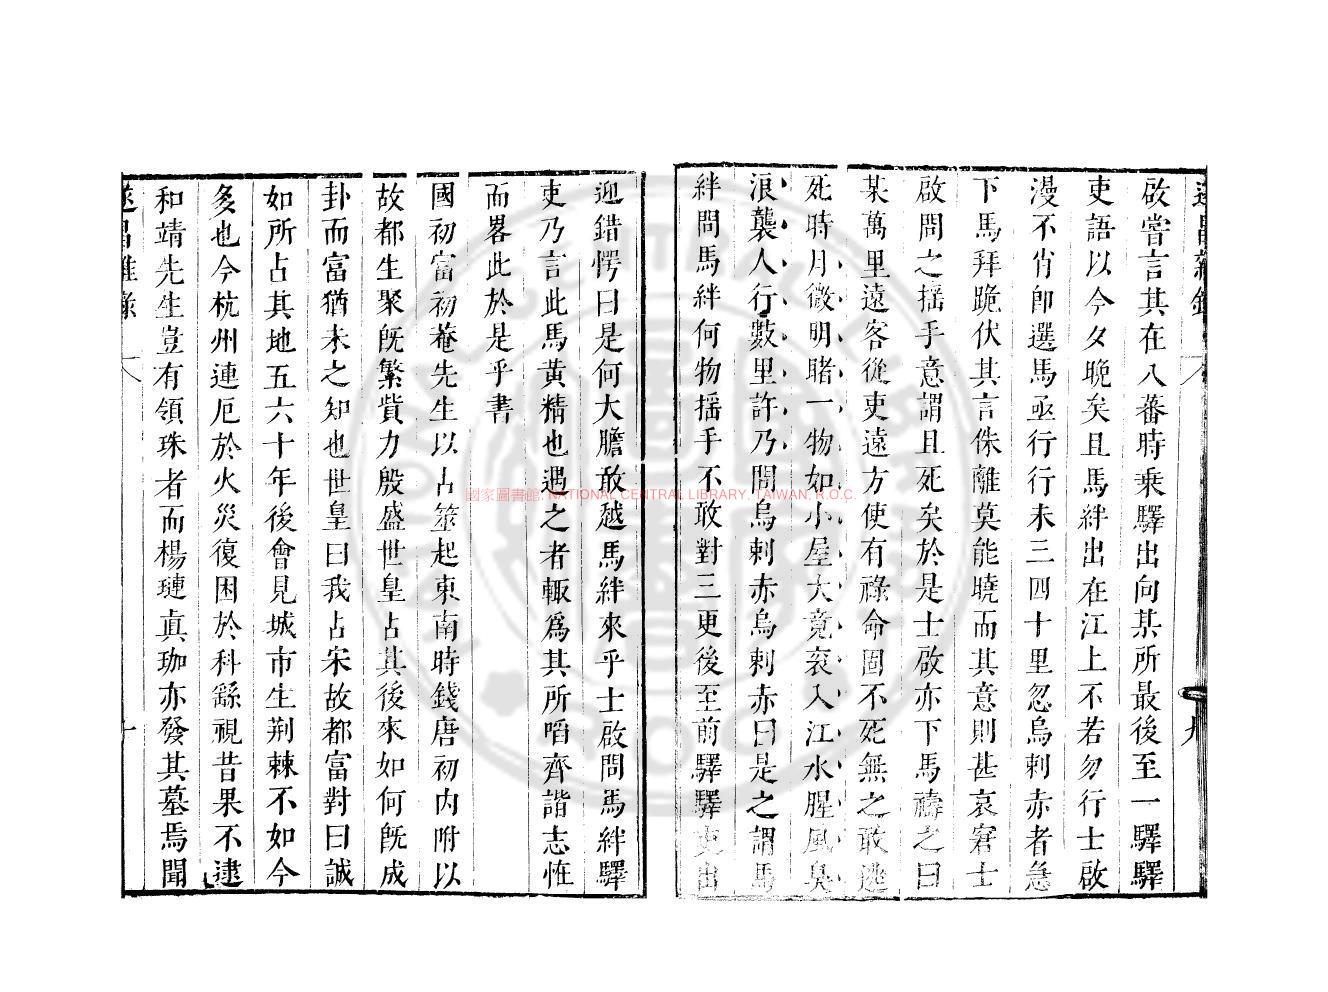 遂昌雜錄
九
啟嘗言其在八蕃時乘驛出向某所最後至一驛驛
吏語以今夕晚矣且馬絆出在江上不若勿行士啟
漫不肯卽選馬亟行行未三四十里忽烏剌赤者急
下馬拜跪伏其言侏離莫能曉而其意則甚哀窘士
啟問之揺手意謂且死矣於是士啟亦下馬禱之曰
某萬里遠客從吏遠方使有祿命固不死無之敢逃
死時月微明睹一物如小屋大竟衮入江水腥風臭
浪襲人行數里許乃問烏剌赤烏剌赤曰是之謂馬
絆問馬絆何物揺手不敢對三更後至前驛驛吏出
迎錯愕曰是何大膽敢越馬絆來乎士啟問馬絆驛
吏乃言此馬黃精也遇之者輙爲其所啗齊諧志恠
而畧此於是乎書
國初富初菴先生以占筮起東南時錢唐初内附以
故都生聚旣繁貲力殷盛世皇占其後來如何旣成
卦而富猶未之知也世皇曰我占宋故都富對曰誠
如所占其地五六十年後會見城市生荆棘不如今
多也今杭州連厄於火災復困於科繇視昔果不逮
和靖先生豈有領珠者而楊璉眞珈亦發其墓焉聞
遂昌雜錄
十
國家圖書館, NATIONAL CENTRAL LIBRARY, TAIWAN, R.O.C.